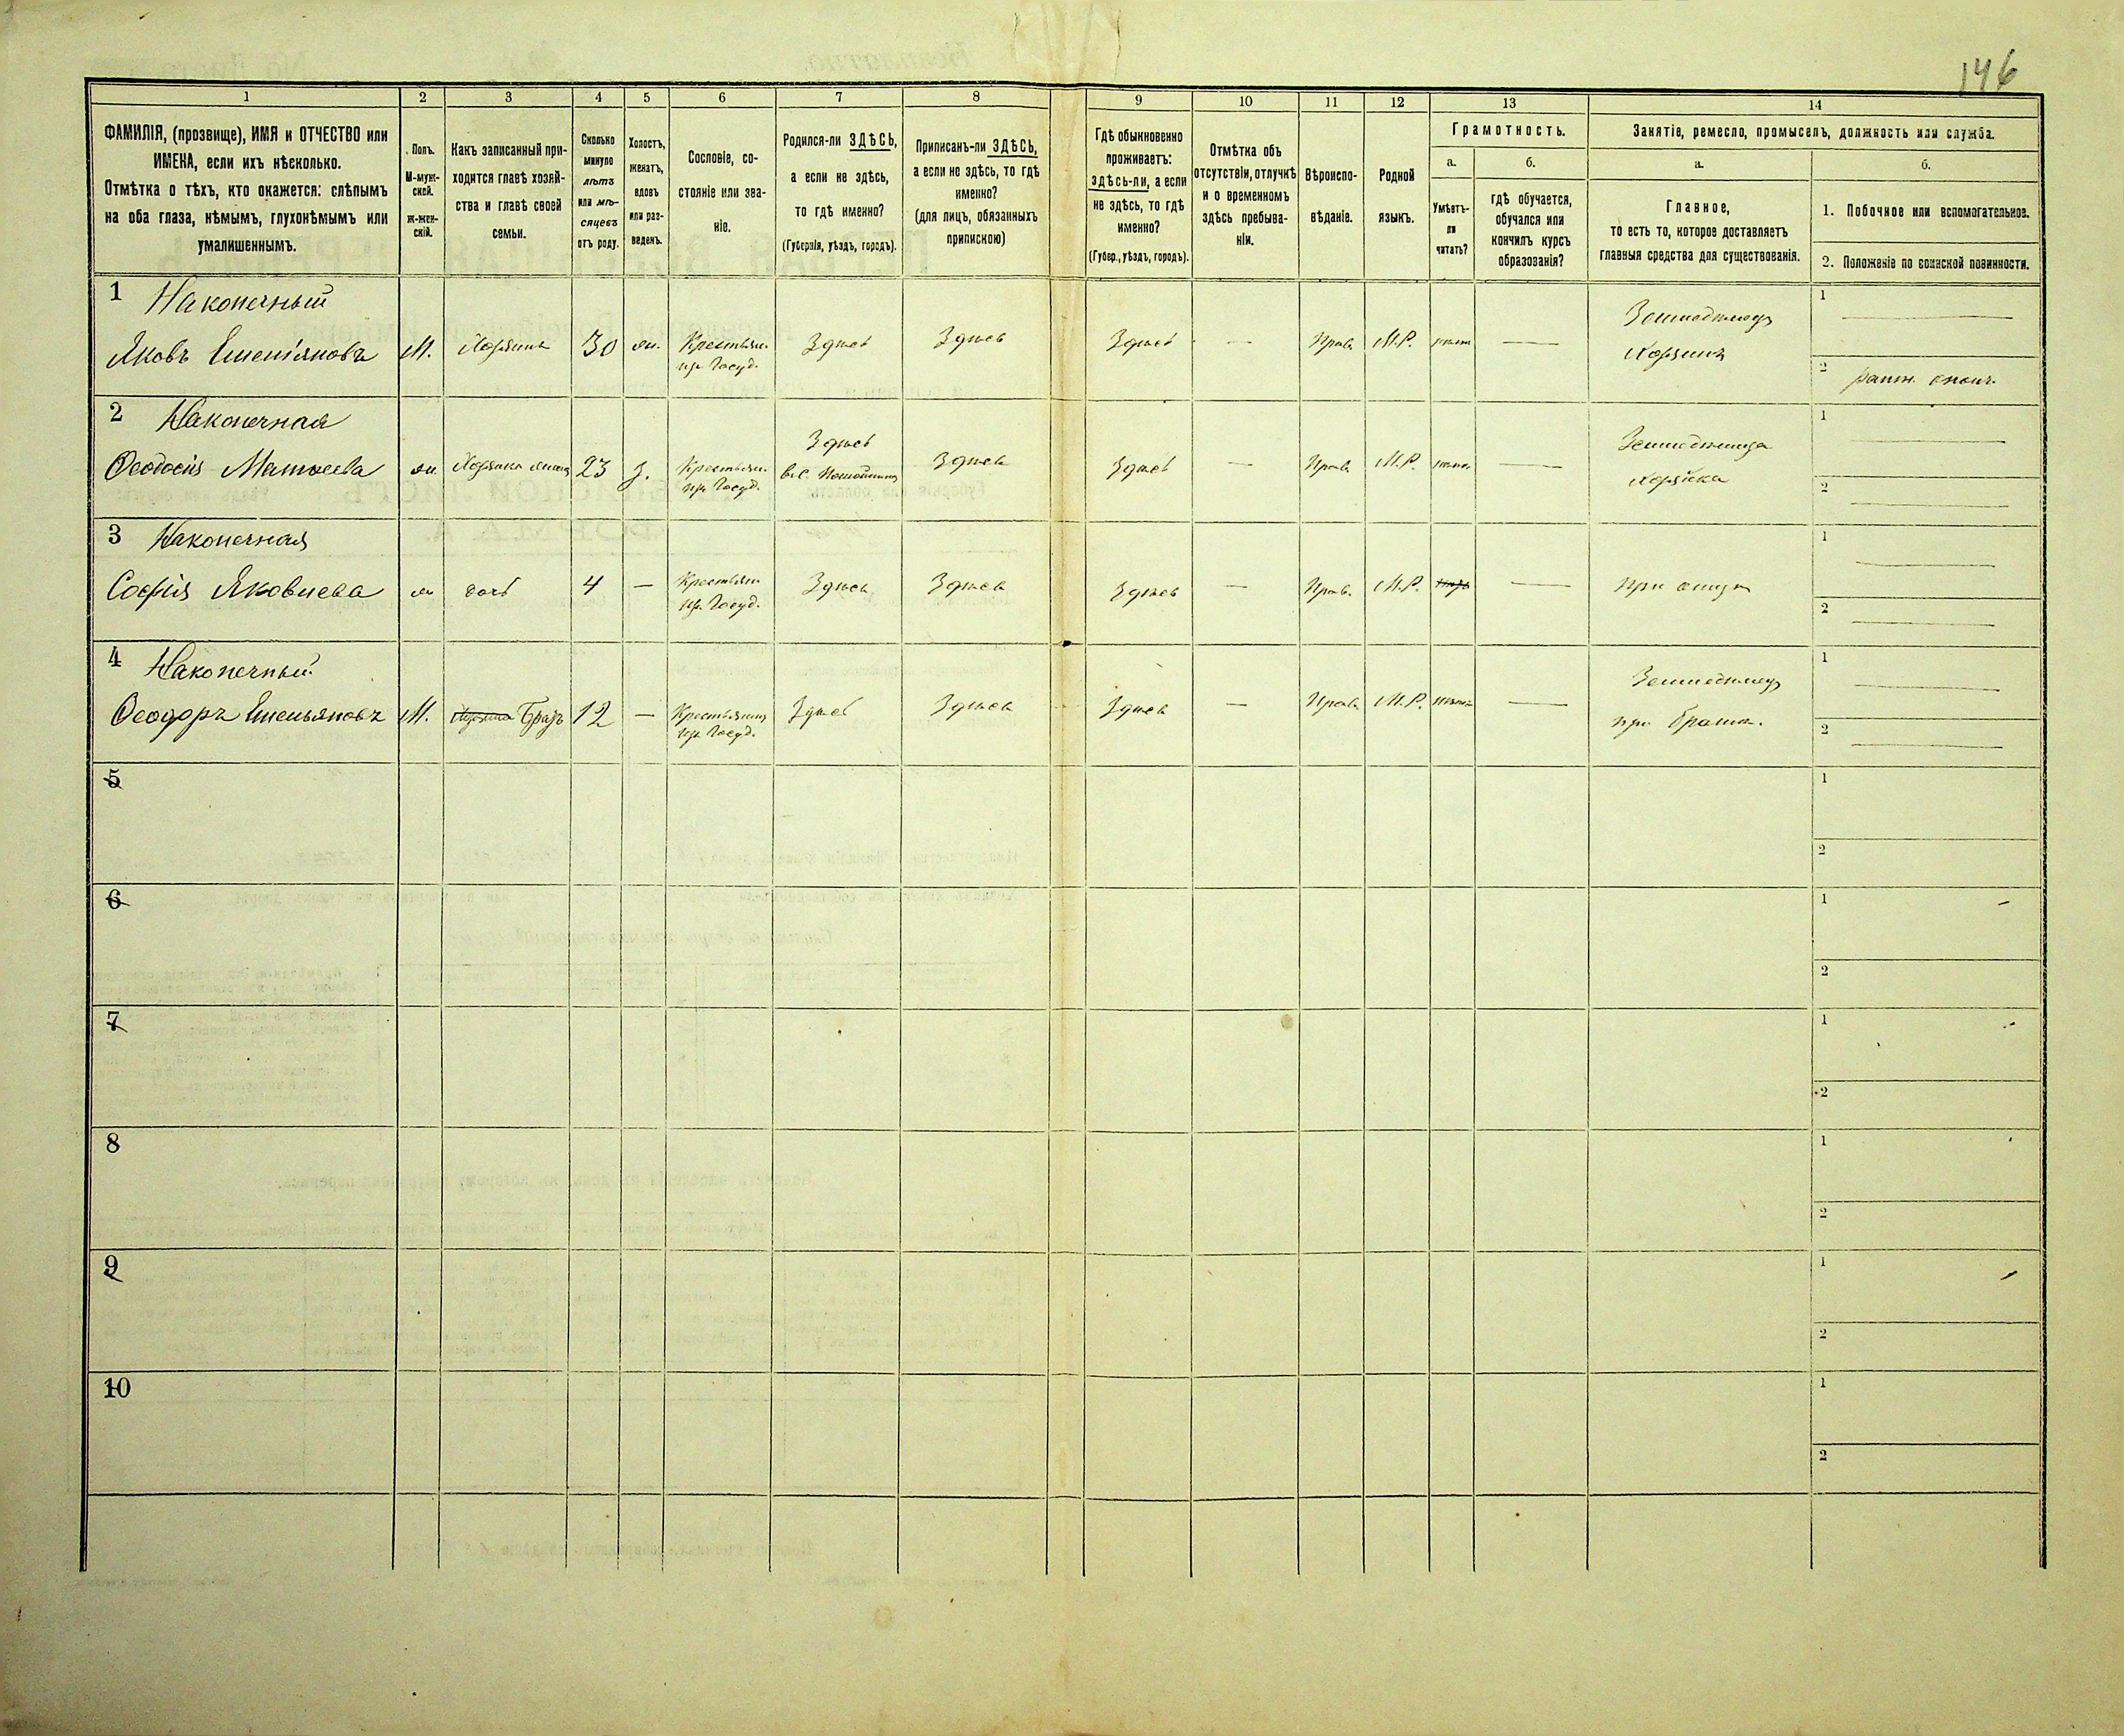 146
1
2
3
4
5
6
7
8
9
10
11
12
13
14
ФАМИЛІЯ, (прозвище), ИМЯ и ОТЧЕСТВО или
ИМЕНА, если ихъ нѣсколько.
Отмѣтка о тѣхъ, кто окажется: слѣпымъ
на оба глаза, нѣмымъ, глухонѣмымъ или
умалишеннымъ.
Полъ.
М-муж-
ской.
ж-жен-
скій.
Какъ записанный при-
ходится главѣ хозяй-
ства и главѣ своей
семьи.
Сколько
минуло
лѣтъ
или мѣ-
сяцевъ
отъ роду.
Холостъ,
женатъ,
вдовъ
или раз-
веденъ.
Сословіе, со-
стояніе или зва-
ніе.
Родился-ли ЗДѢСЬ,
а если не здѣсь,
то гдѣ именно?
(Губернія, уѣздъ, городъ).
Приписанъ-ли ЗДѢСЬ,
а если не здѣсь, то гдѣ
именно?
(для лицъ, обязанныхъ
припискою)
Гдѣ обыкновенно
проживаетъ:
здѣсь-ли, а если
не здѣсь, то гдѣ
именно?
(Губер., уѣздъ, городъ).
Отмѣтка объ
отсутствіи, отлучкѣ
и о временномъ
здѣсь пребыва-
ніи.
Вѣроиспо-
вѣданіе.
Родной
языкъ.
Грамотность.
а.
Умѣетъ-
ли
читать?
б.
гдѣ обучается,
обучался или
кончилъ курсъ
образованія?
Занятіе, ремесло, промыселъ, должность или служба.
а.
Главное,
то есть то, которое доставляетъ
главныя средства для существованія.
б.
1. Побочное или вспомогательное.
2. Положеніе по воинской повинности.
1 Наконечный
Яковъ Емельяновъ М. Хозяинъ 30 жн. Крестьян. Здѣсь Здѣсь Здѣсь — Прав. М.Р. —
из Госуд.
Земледѣлецъ
Хозяинъ
1 —
2 ратн. ополч.
2 Наконечная
Ѳеодосія Матвеева жн Хозяина жена 23 з. Крестьян. Здѣсь Здѣсь — Прав. М.Р. —
из Госуд.
Здѣсь
въ с.
Земледѣлица
хозяйка
1 —
2 —
3 Наконечная
Софія Яковлева ж дочь 4 — Крестьян. Здѣсь Здѣсь Здѣсь — Прав. М.Р. —
из Госуд.
при отцѣ
1 —
2 —
4 Наконечный
Ѳеодоръ Емельяновъ М. Братъ 12 — Крестьянинъ Здѣсь Здѣсь Здѣсь — Прав. М.Р. —
из Госуд.
Земледѣлецъ
при братѣ.
1 —
2 —
5
1
2
6
1
2
7
1
2
8
1
2
9
1
2
10
1
2